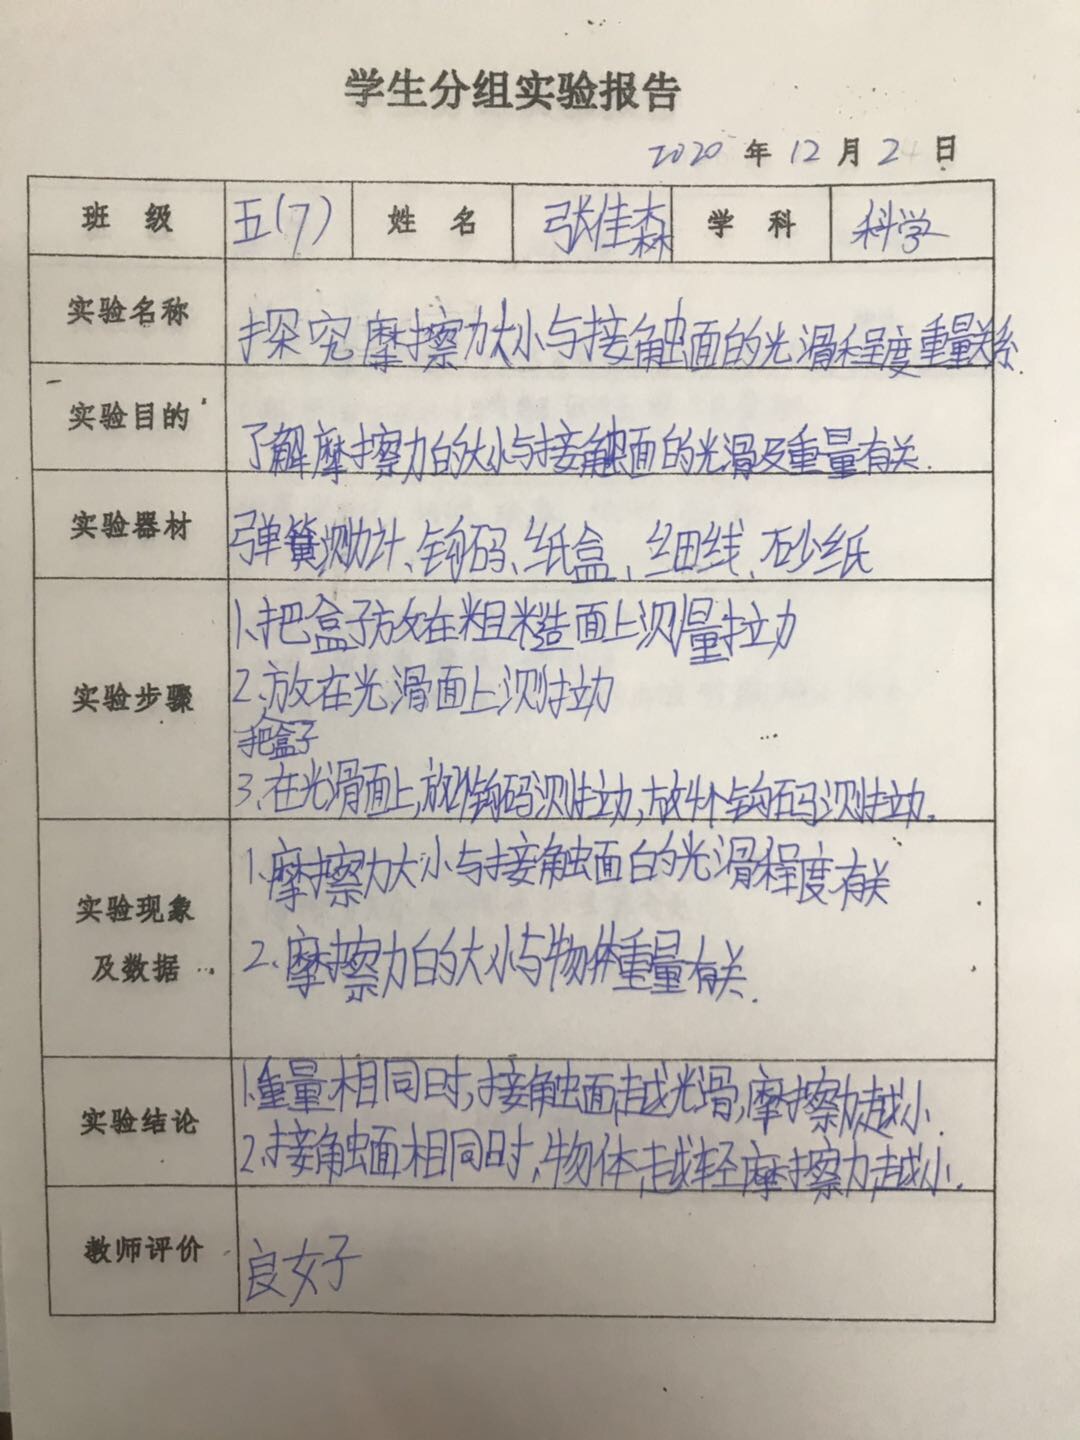 学生分组实验报告
2020 年 12 月 24 日
班 级 五(7) 姓 名 张佳森 学 科 科学
实验名称 探究摩擦力大小与接触面的光滑程度重量关系.
实验目的 了解摩擦力的大小与接触面的光滑及重量有关.
实验器材 弹簧测力计、钩码、纸盒、细线、砂纸
实验步骤
1、把盒子放在粗糙面上测量拉力
2、放在光滑面上测拉力
把盒子
3、在光滑面上,放1个钩码测拉力,放4个钩码测拉力。
实验现象
及数据
1、摩擦力大小与接触面的光滑程度有关
2、摩擦力的大小与物体重量有关.
实验结论
1.重量相同时,接触面越光滑,摩擦力越小.
2.接触面相同时,物体越轻摩擦力越小.
教师评价 良好